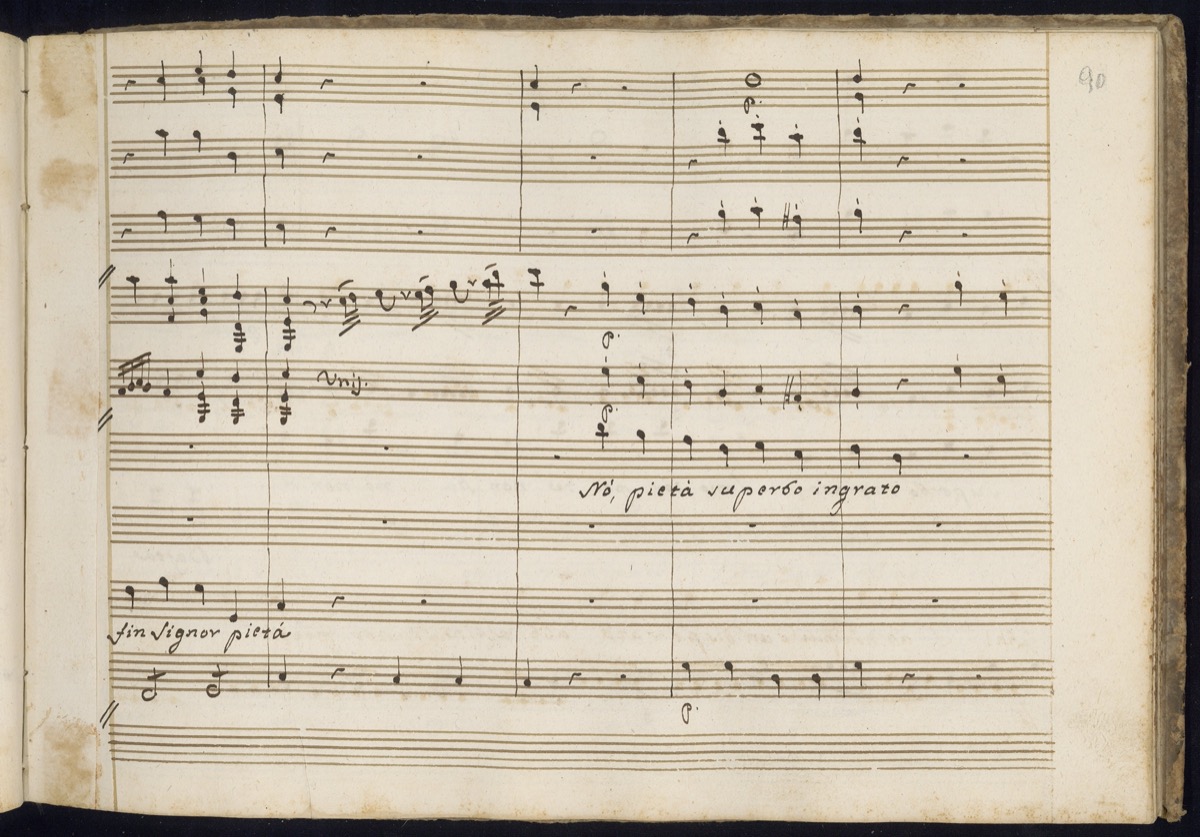 90
p.
p.
Unis.
p.
Nò, pietà superbo ingrato
fin Signor pietà
p.